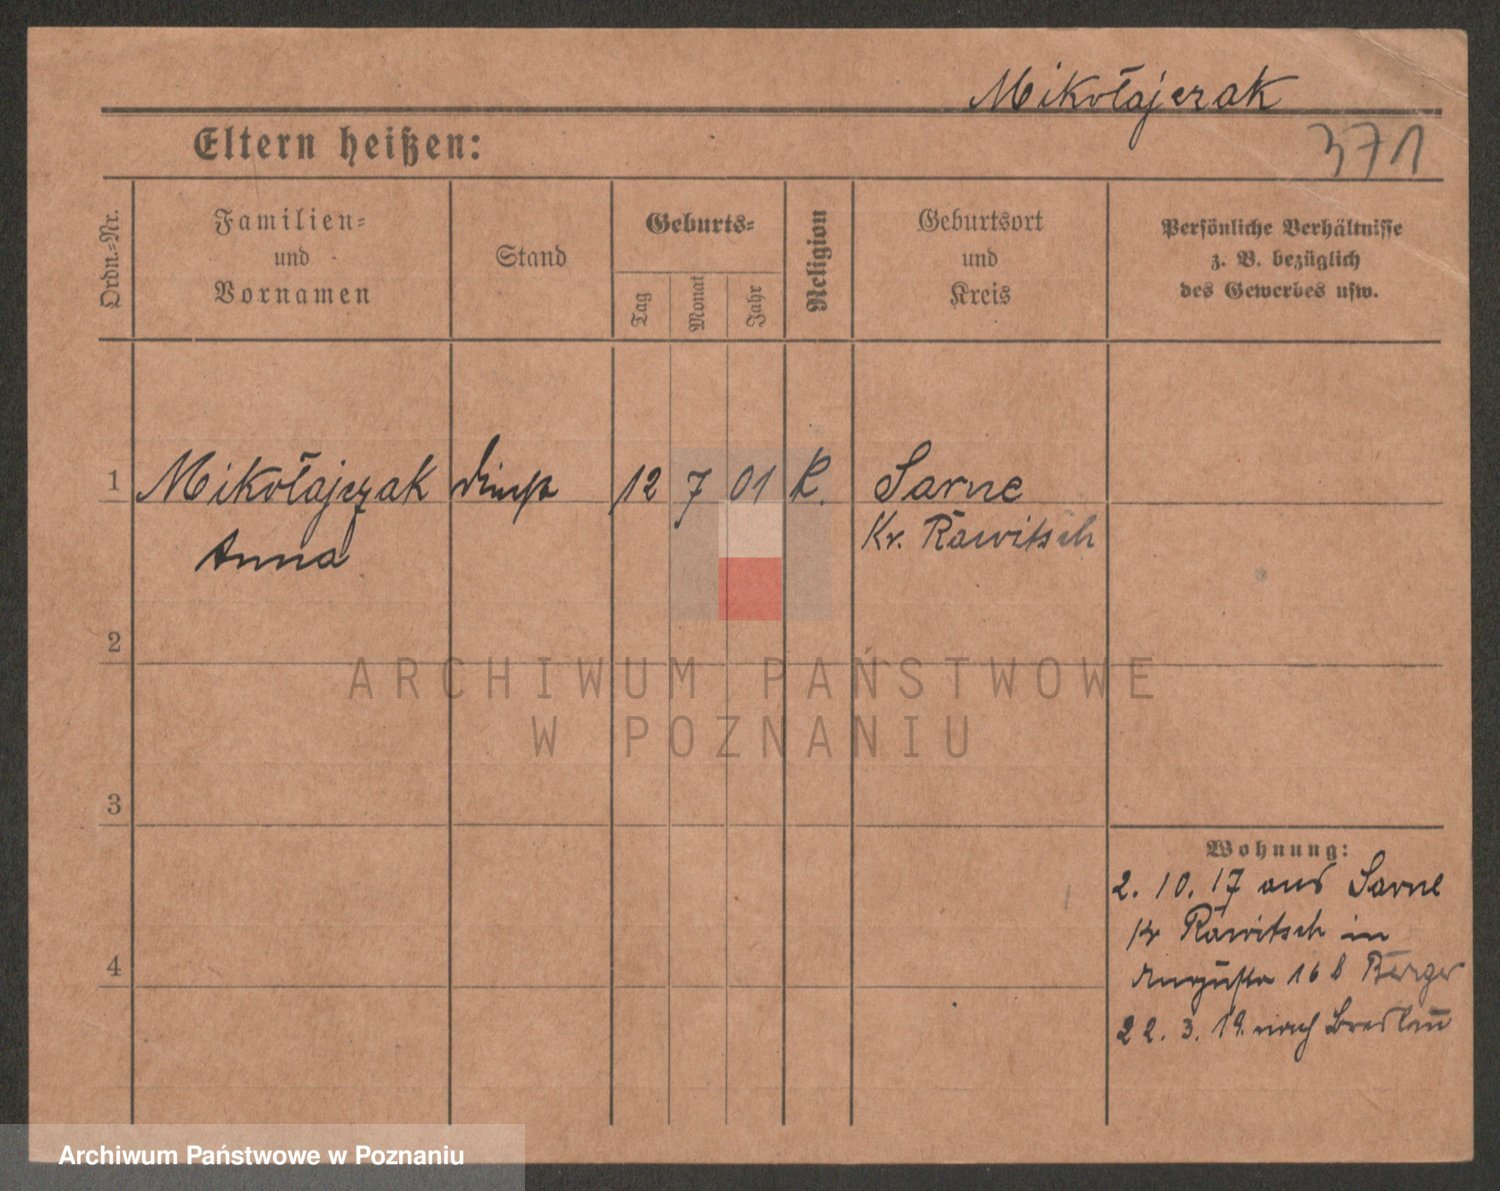 Mikołajczak
Eltern heißen:
371
Ordn.-Nr.
Familien-
und
Vornamen
Stand
Geburts-
Tag
Monat
Jahr
Religion
Geburtsort
und
Kreis
Persönliche Verhältnisse
z. B. bezüglich
des Gewerbes usw.
1
Mikołajczak
12
7
01
K.
Sarne
Anna
Kr. Rawitsch
2
ARCHIWUM PAŃSTWOWE
W POZNANIU
3
Wohnung:
2. 10. 17 aus Sarne
Kr Rawitsch in
Augusta 16 b Berger
4
22. 3. 19. nach Breslau
Archiwum Państwowe w Poznaniu